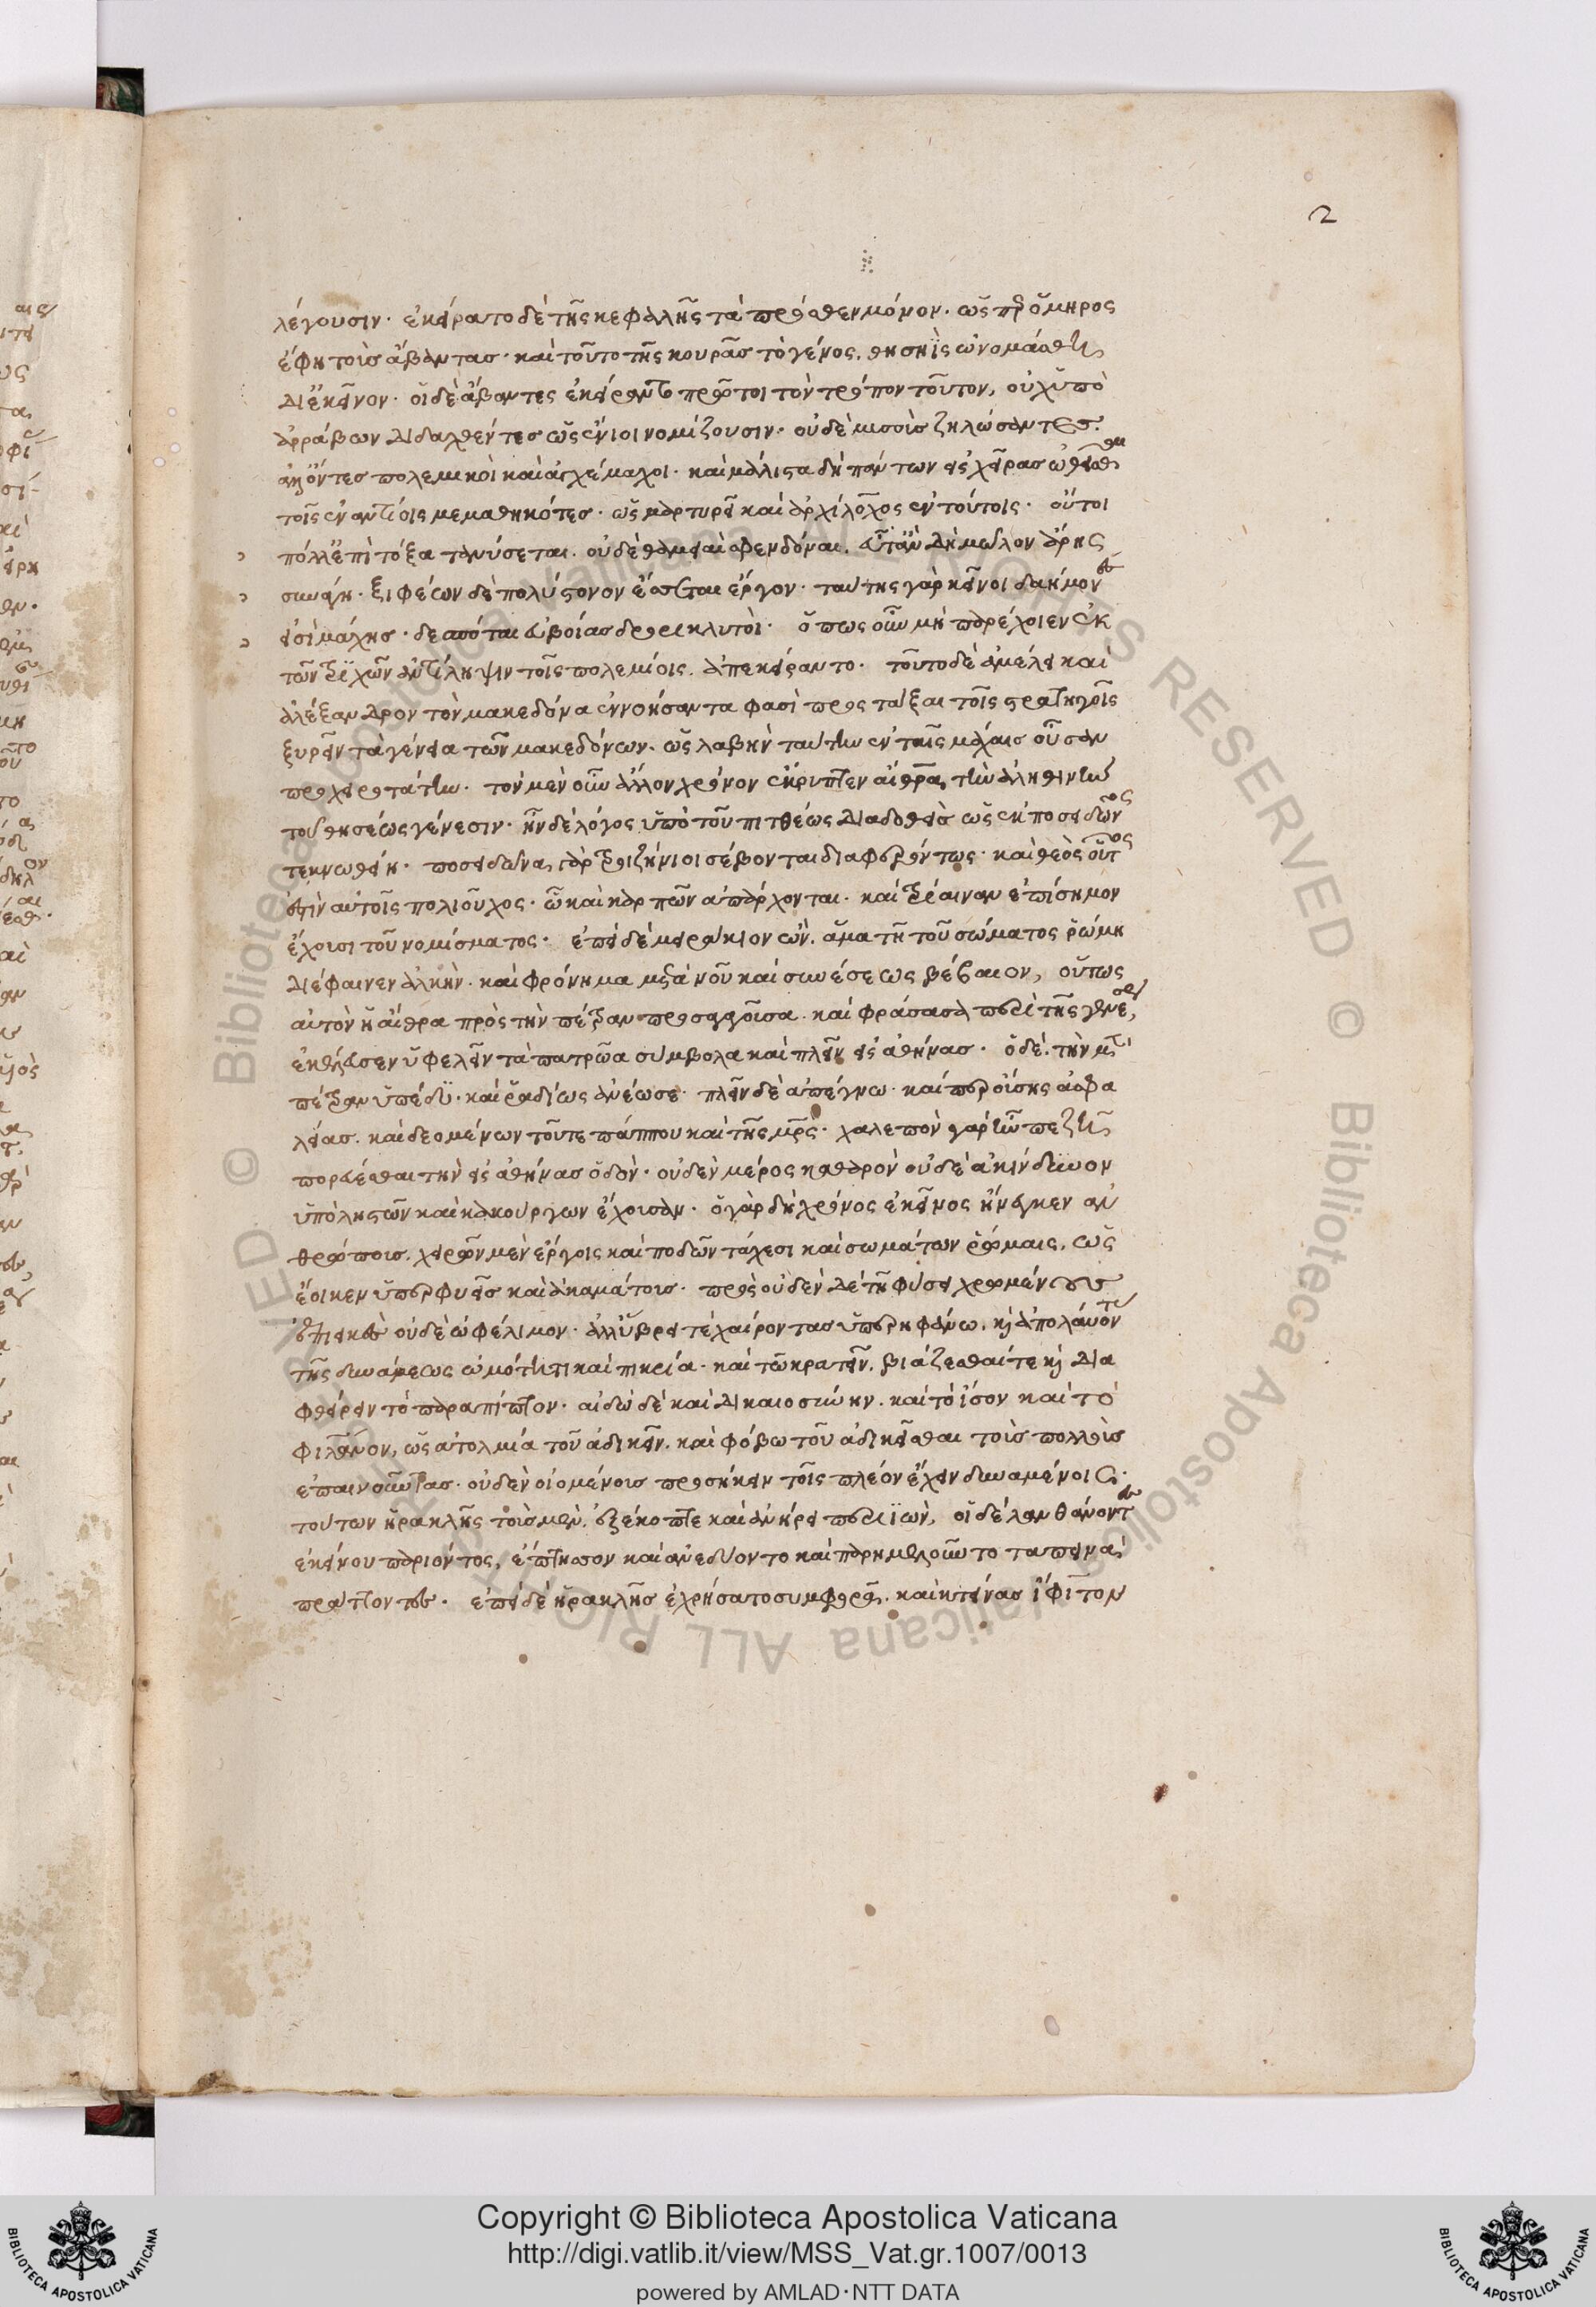 2
λέγουσιν· ἐκείρατο δὲ τῆς κεφαλῆς τὰ πρόσθεν μόνον. ὥσπερ ὅμηρος
ἔφη τοὺς ἄβαντας· καὶ τοῦτο τῆς κουρᾶς τὸ γένος, θησηῒς ὠνομάσθη
δι' ἐκεῖνον· οἱ δὲ ἄβαντες ἐκείραντο πρῶτοι τὸν τρόπον τοῦτον, οὐχ ὑπὸ
ἀρράβων διδαχθέντες ὡς ἔνιοι νομίζουσιν· οὐδὲ μυσοὺς ζηλώσαντες·
ἀλλ' ὄντες πολεμικοὶ καὶ ἀγχέμαχοι· καὶ μάλιστα δὴ πάντων εἰς χεῖρας ὠθεῖσθαι
τοῖς ἐναντίοις μεμαθηκότες· ὡς μαρτυρεῖ καὶ ἀρχίλοχος ἐν τούτοις· οὔτοι
πόλλ' ἐπὶ τόξα τανύσεται. οὐδὲ θαμειαὶ σφενδόναι. εὖτ' ἂν δὴ μῶλον ἄρης
συνάγη· ξιφέων δὲ πολύστονον ἔσσεται ἔργον· ταύτης γὰρ κεῖνοι δαήμονες
εἰσὶ μάχης· δεσπόται εὐβοίας δουρικλυτοί· ὅπως οὖν μὴ παρέχοιεν ἐκ
τῶν τριχῶν ἀντίληψιν τοῖς πολεμίοις. ἀπεκείραντο· τοῦτο δὲ ἀμέλει καὶ
ἀλέξανδρον τὸν μακεδόνα ἐννοήσαντα φασὶ προστάξαι τοῖς στρατηγοῖς
ξυρεῖν τὰ γένεια τῶν μακεδόνων. ὡς λαβὴν ταύτην ἐν ταῖς μάχαις οὖσαν
προχειροτάτην· τὸν μὲν οὖν ἄλλον χρόνον ἔκρυπτεν αἴθρα τὴν ἀληθινὴν
τοῦ θησέως γένεσιν· ἦν δὲ λόγος ὑπὸ τοῦ πιτθέως διαδοθεὶς ὡς ἐκ ποσειδῶνος
τεκνωθείη· ποσειδῶνα γὰρ τροιζήνιοι σέβονται διαφερόντως· καὶ θεὸς οὗτος
ἐστὶν αὐτοῖς πολιοῦχος· ᾧ καὶ καρπῶν ἀπάρχονται· καὶ τρίαιναν ἐπίσημον
ἔχουσι τοῦ νομίσματος· ἐπεὶ δὲ μειράκιον ὢν. ἅμα τῆ τοῦ σώματος ῥώμη
διέφαινεν ἀλκὴν· καὶ φρόνημα μετὰ νοῦ καὶ συνέσεως βέβαιον, οὕτως
αὐτὸν ἡ αἴθρα πρὸς τὴν πέτραν προσαγαγοῦσα· καὶ φράσασα περὶ τῆς γενέσεως,
ἐκέλευσεν ὑφελεῖν τὰ πατρῶα σύμβολα καὶ πλεῖν εἰς ἀθήνας· ὁ δὲ τὴν μὲν
πέτραν ὑπέδυ· καὶ ῥαδίως ἀνέωσε· πλεῖν δὲ ἀπέγνω· καὶ περ οὔσης ἀσφα
λείας. καὶ δεομένων τοῦ τε πάππου καὶ τῆς μητρός· χαλεπὸν γὰρ ἦν πεζῆ
πορεύεσθαι τὴν εἰς ἀθήνας ὁδὸν· οὐδὲν μέρος καθαρὸν οὐδὲ ἀκίνδυνον
ὑπὸ ληστῶν καὶ κακούργων ἔχουσαν· ὁ γὰρ δὴ χρόνος ἐκεῖνος ἤνεγκεν ἀν
θρώπους. χειρῶν μὲν ἔργοις καὶ ποδῶν τάχεσι καὶ σωμάτων ῥώμαις, ὡς
ἔοικεν ὑπερφυεῖς καὶ ἀκαμάτους· πρὸς οὐδὲν δὲ τῆ φύσει χρωμένους
ἐπιεικὲς οὐδὲ ὠφέλιμον· ἀλλ' ὕβρει τε χαίροντας ὑπερηφάνω. καὶ ἀπολαύοντας
τῆς δυνάμεως ὠμότητι καὶ πικρία· καὶ τῶ κρατεῖν. βιάζεσθαί τε καὶ δια
φθείρειν τὸ παραπίπτον· αἰδῶ δὲ καὶ δικαιοσύνην. καὶ τὸ ἴσον καὶ τὸ
φιλάνθρωπον, ὡς ἀτολμία τοῦ ἀδικεῖν. καὶ φόβω τοῦ ἀδικεῖσθαι τοὺς πολλοὺς
ἐπαινοῦντας· οὐδὲν οἰομένους προσήκειν τοῖς πλέον ἔχειν δυναμένοις·
τούτων ἡρακλῆς τοὺς μὲν. ἐξέκοπτε καὶ ἀνήρει περιϊών, οἱ δὲ λανθάνοντες
ἐκείνου παριόντος, ἔπτησσον καὶ ἀνεδύοντο καὶ παρημελοῦντο ταπεινὰ
πράττοντες· ἐπεὶ δὲ ἡρακλῆς ἐχρήσατο συμφορᾶ. καὶ κτείνας ἴφιτον
© Biblioteca Apostolica Vaticana ALL RIGHTS RESERVED © Biblioteca Apostolica Vaticana ALL RIGHTS RESERVED
BIBLIOTECA APOSTOLICA VATICANA
Copyright © Biblioteca Apostolica Vaticana
http://digi.vatlib.it/view/MSS_Vat.gr.1007/0013
powered by AMLAD·NTT DATA
BIBLIOTECA APOSTOLICA VATICANA